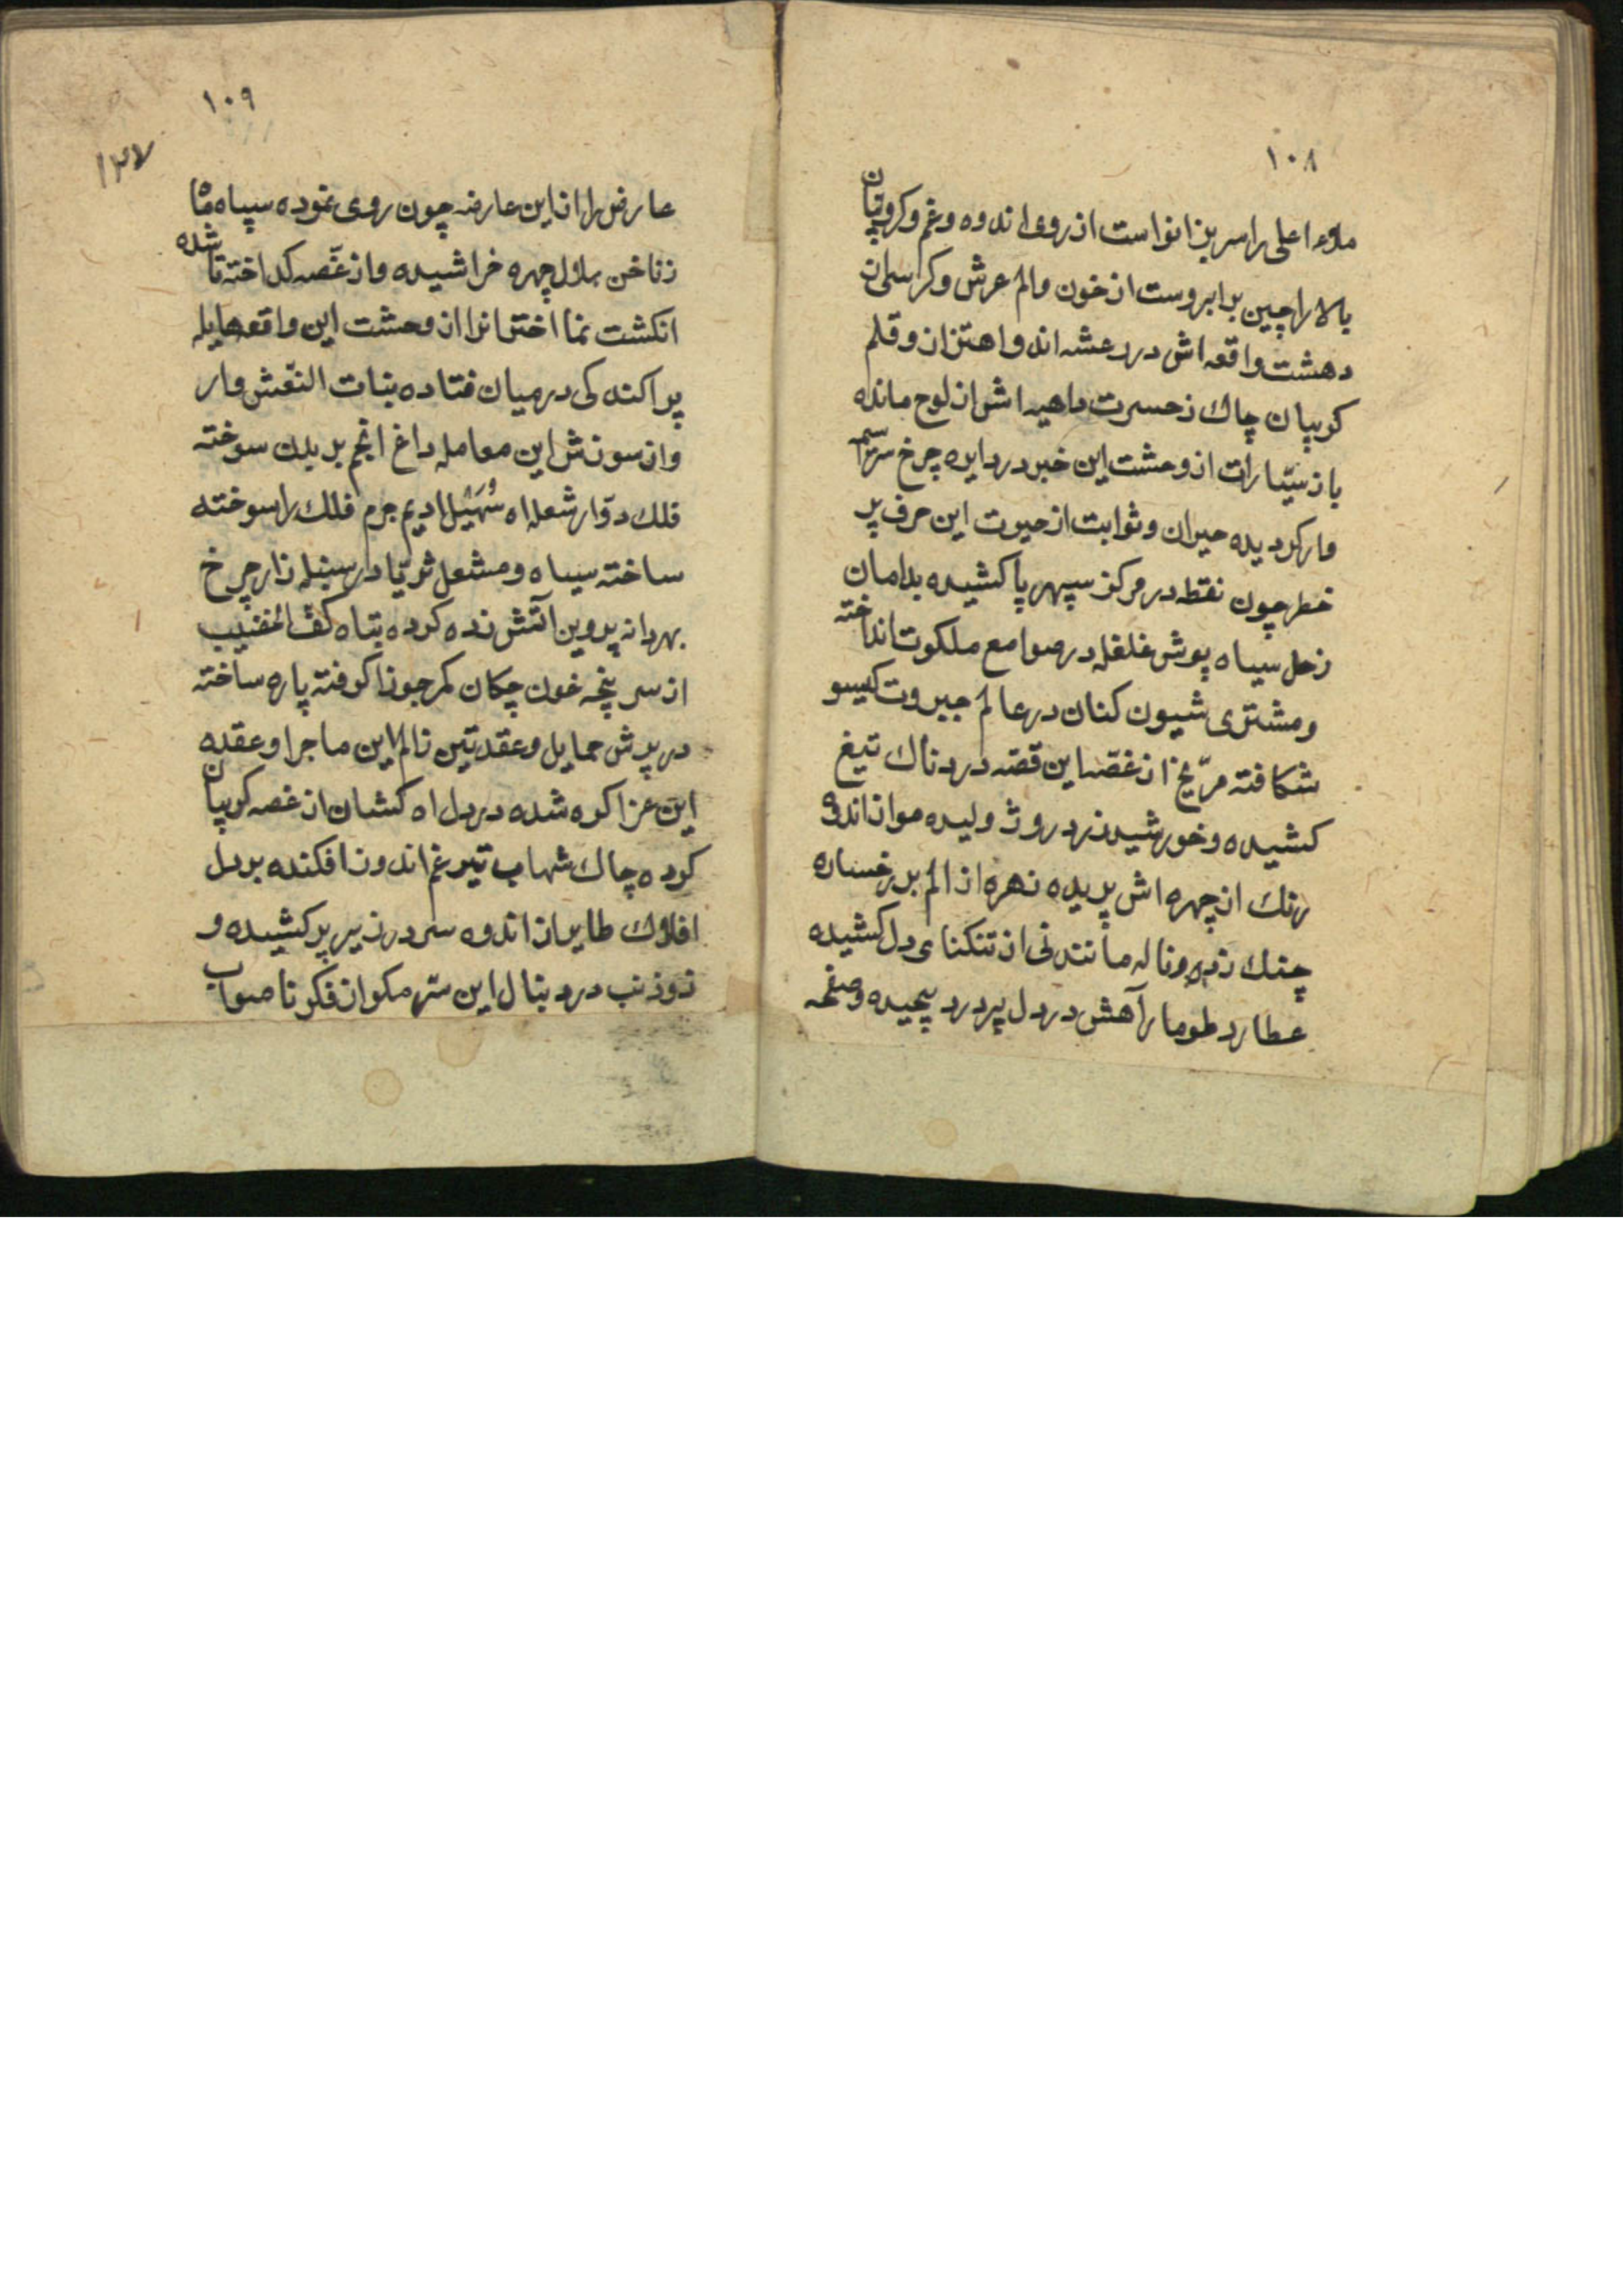 ۱۰۸
ملاء اعلی را سر بزانواست از روی اندوه و غم و کروبیان
بالا را چین بر ابروست از خون و الم عرش و کرسی از
دهشت واقعه اش در رعشه اند و اهتزاز و قلم
کریبان چاك ز حسرت داهیه اش از لوح مانده
باز سیّارات از وحشت این خبر در دایره چرخ سراسیمه
وار کردیده حیران و ثوابت از حیرت این حرف پر
خطر چون نقطه در مرکز سپهر پا کشیده بدامان
زحل سیاه پوش غلغله در صوامع ملکوت انداخته
و مشتری شیون کنان در عالم جبروت کیسو
شکافته مرّیخ از غصه این قصّه دردناك تیغ
کشیده و خورشید زرد رو ژولیده مو از اندوه
رنك از چهره اش پریده زهره از الم بر رخساره
چنك زده و ناله مانند نی از تنکنای دل کشیده
عطارد طومار آهش در دل پر درد پیچیده و صفحه
۱۰۹
۱۲۷
عارض را از این عارضه چون روی نموده سیاه ماه
ز ناخن هلال چهره خراشیده و از غصّه کداخته تا شده
انکشت نما اخترانرا از وحشت این واقعه هایله
پراکندکی در میان فتاده بنات النّعش وار
و از سوزش این معامله داغ انجم بر بدن سوخته
فلك دوّار شعله اه سُهَیْل ادیم جرم فلك را سوخته
ساخته سیاه و مشعل ثریّا در سنبله زار چرخ
بهر دانه پروین آتش زده کرده تباه کف الخضیب
از سر پنجه خون چکان کمر جوزا کرفته پاره ساخته
در برش حمایل و عقد تین ز الم این ماجرا و عقده
این عزا کره شده در دل اه کشان از غصه کریبان
کرده چاك شهاب تیر غم اندوز افکنده بر دل
افلاك طایر از اندوه سر در زیر پر کشیده و
ذوذنب در دنبال این ستمکر از فکر ناصواب